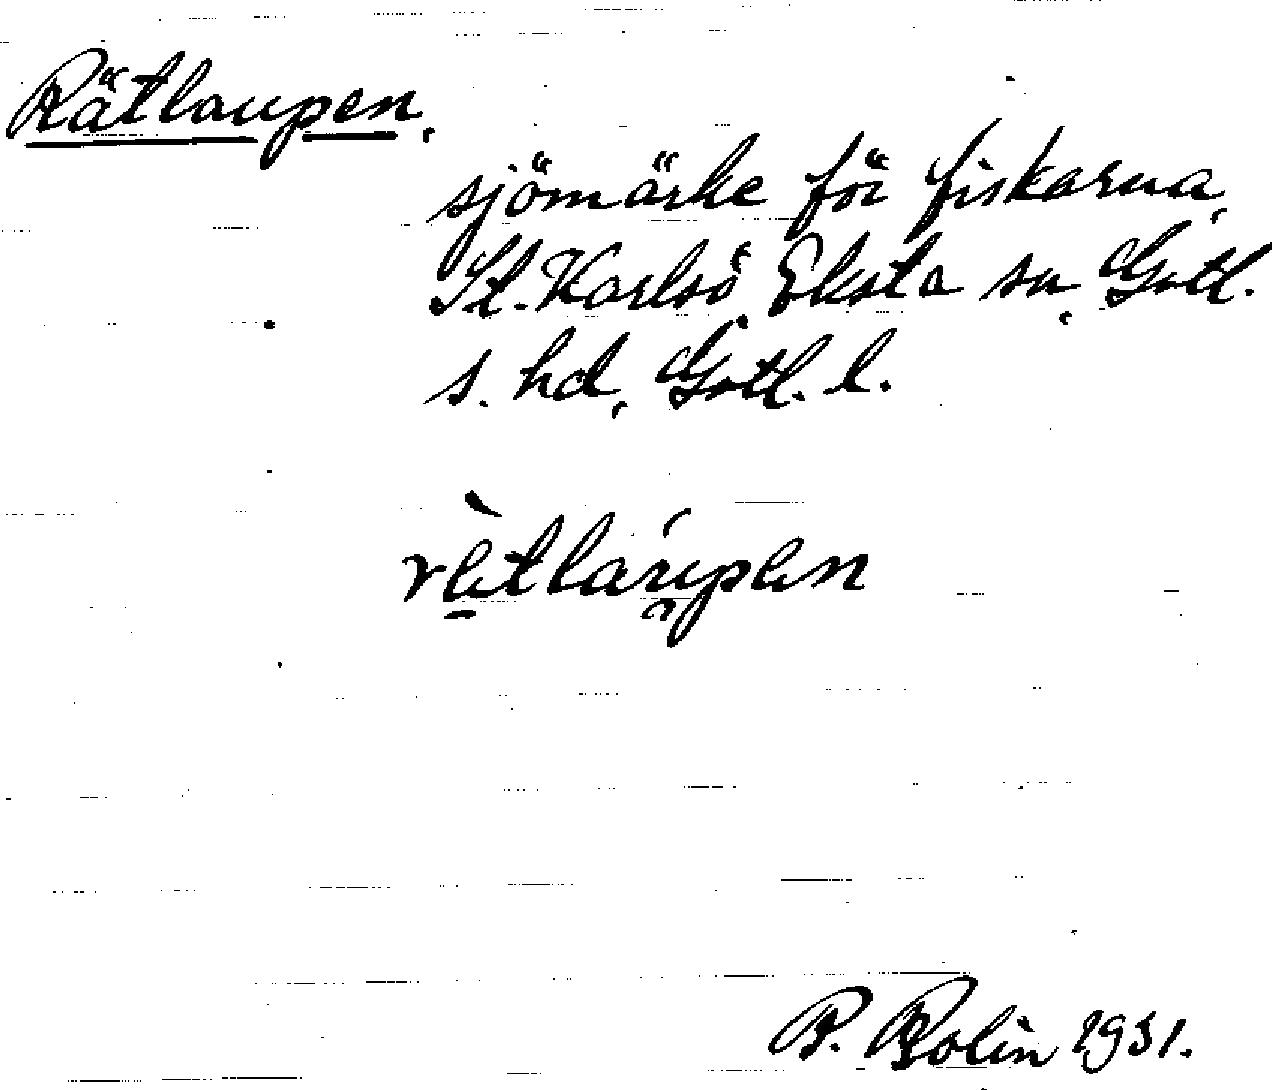 Rätlaupen,
sjömärke för fiskarna,
St. Karlsö, Eksta sn, Gotl.
s. hd, Gotl. l.
P. Bolin 1931.